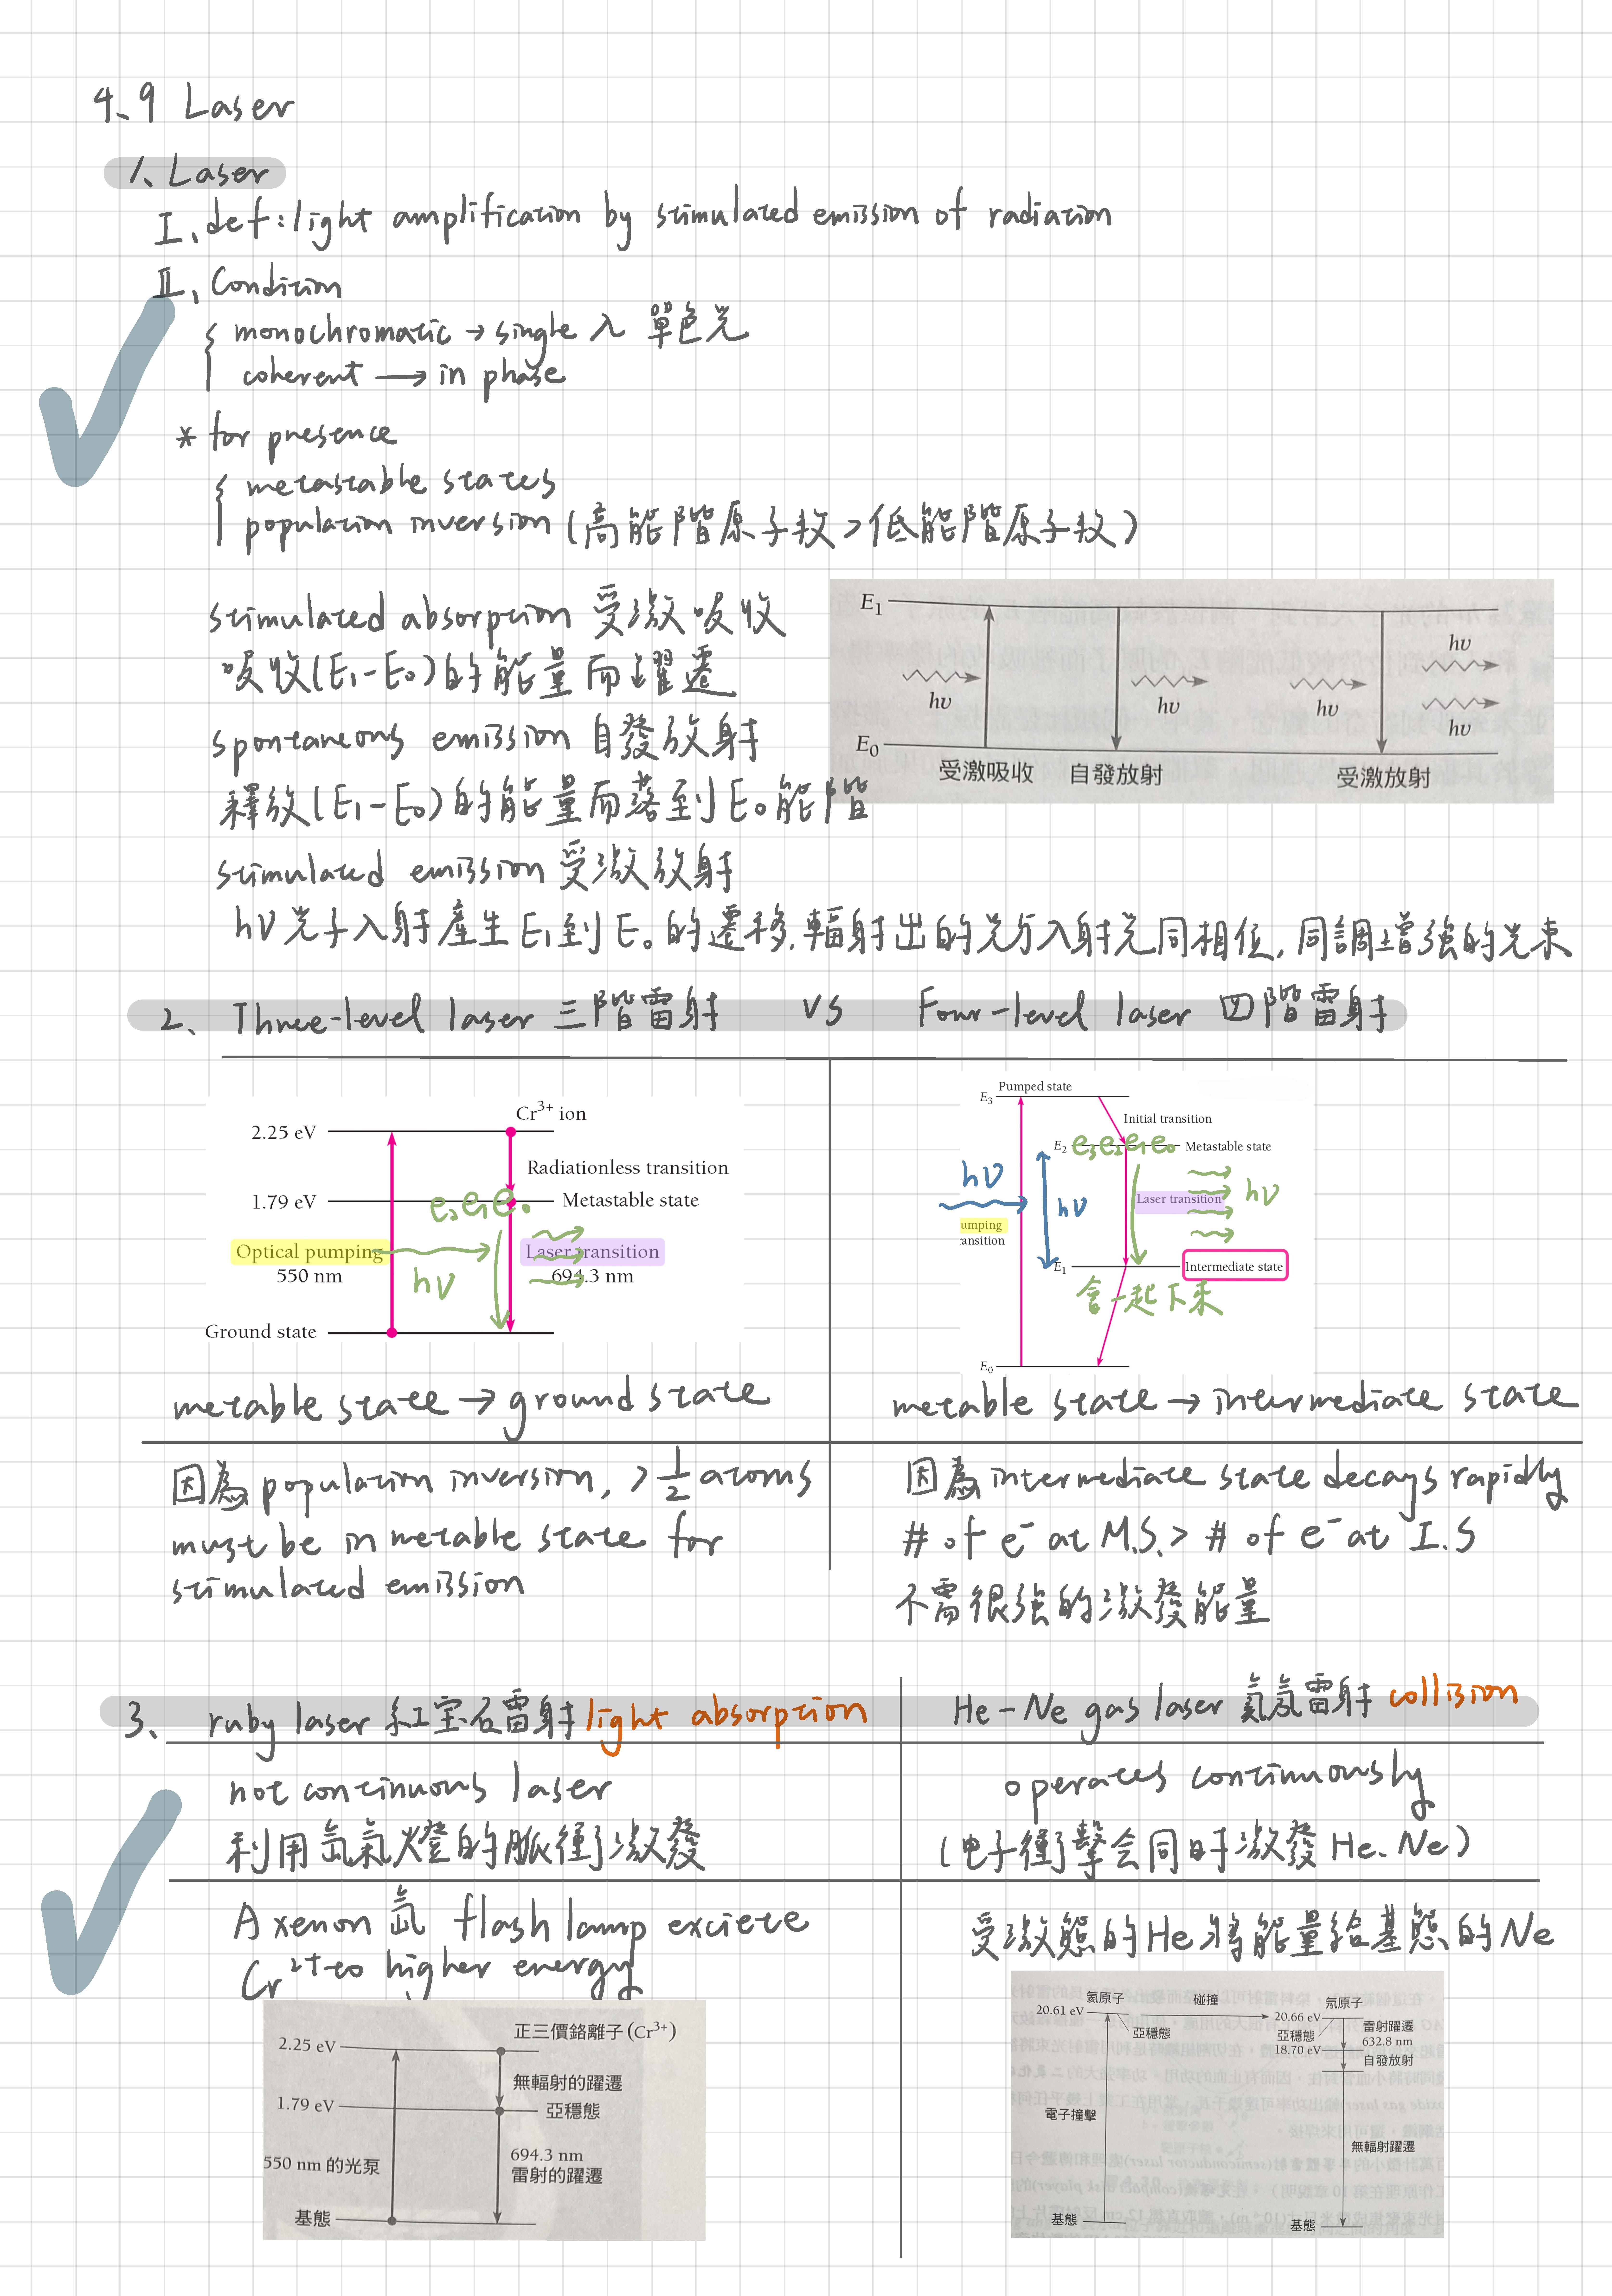 4、9 Laser
1、Laser
I、def:light amplification by stimulated emission of radiation
II、Condition
monochromatic → single λ 單色光
coherent → in phase
* for presence
metastable states
population inversion (高能階原子数>低能階原子数)
stimulated absorption 受激吸收
吸收(E₁-E₀)的能量而躍遷
spontaneous emission 自發放射
釋放(E₁-E₀)的能量而落到E₀能階
stimulated emission 受激放射
hν光子入射產生E₁到E₀的遷移,輻射出的光與入射光同相位,同調增強的光束
E₁
hν
hν
hν
hν
hν
E₀
受激吸收 自發放射 受激放射
2、Three-level laser 三階雷射 VS Four-level laser 四階雷射
Cr³⁺ ion
2.25 eV
Radiationless transition
1.79 eV
Metastable state
e₂e₁e₀
Optical pumping
550 nm
hν
Laser transition
694.3 nm
Ground state
metable state → ground state
因為population inversion, >1/2 atoms
must be in metable state for
stimulated emission
Pumped state
E₃
Initial transition
E₂ e₃e₂e₁e₀ Metastable state
hν
hν
umping
ansition
Laser transition
hν
E₁
Intermediate state
會一起下來
E₀
metable state → intermediate state
因為intermediate state decays rapidly
# of e⁻ at M.S. > # of e⁻ at I.S
不需很強的激發能量
3、ruby laser 紅宝石雷射 light absorption
not continuous laser
利用氙氣燈的脈衝激發
A xenon 氙 flash lamp exciete
Cr²⁺ to higher energy
正三價鉻離子 (Cr³⁺)
2.25 eV
無輻射的躍遷
1.79 eV
亞穩態
550 nm 的光泵
694.3 nm
雷射的躍遷
基態
He-Ne gas laser 氦氖雷射 collision
operates continuously
(电子衝擊会同時激發He、Ne)
受激態的He將能量給基態的Ne
氦原子 碰撞 氖原子
20.61 eV
20.66 eV
亞穩態
亞穩態
18.70 eV
雷射躍遷
632.8 nm
自發放射
電子撞擊
無輻射躍遷
基態
基態